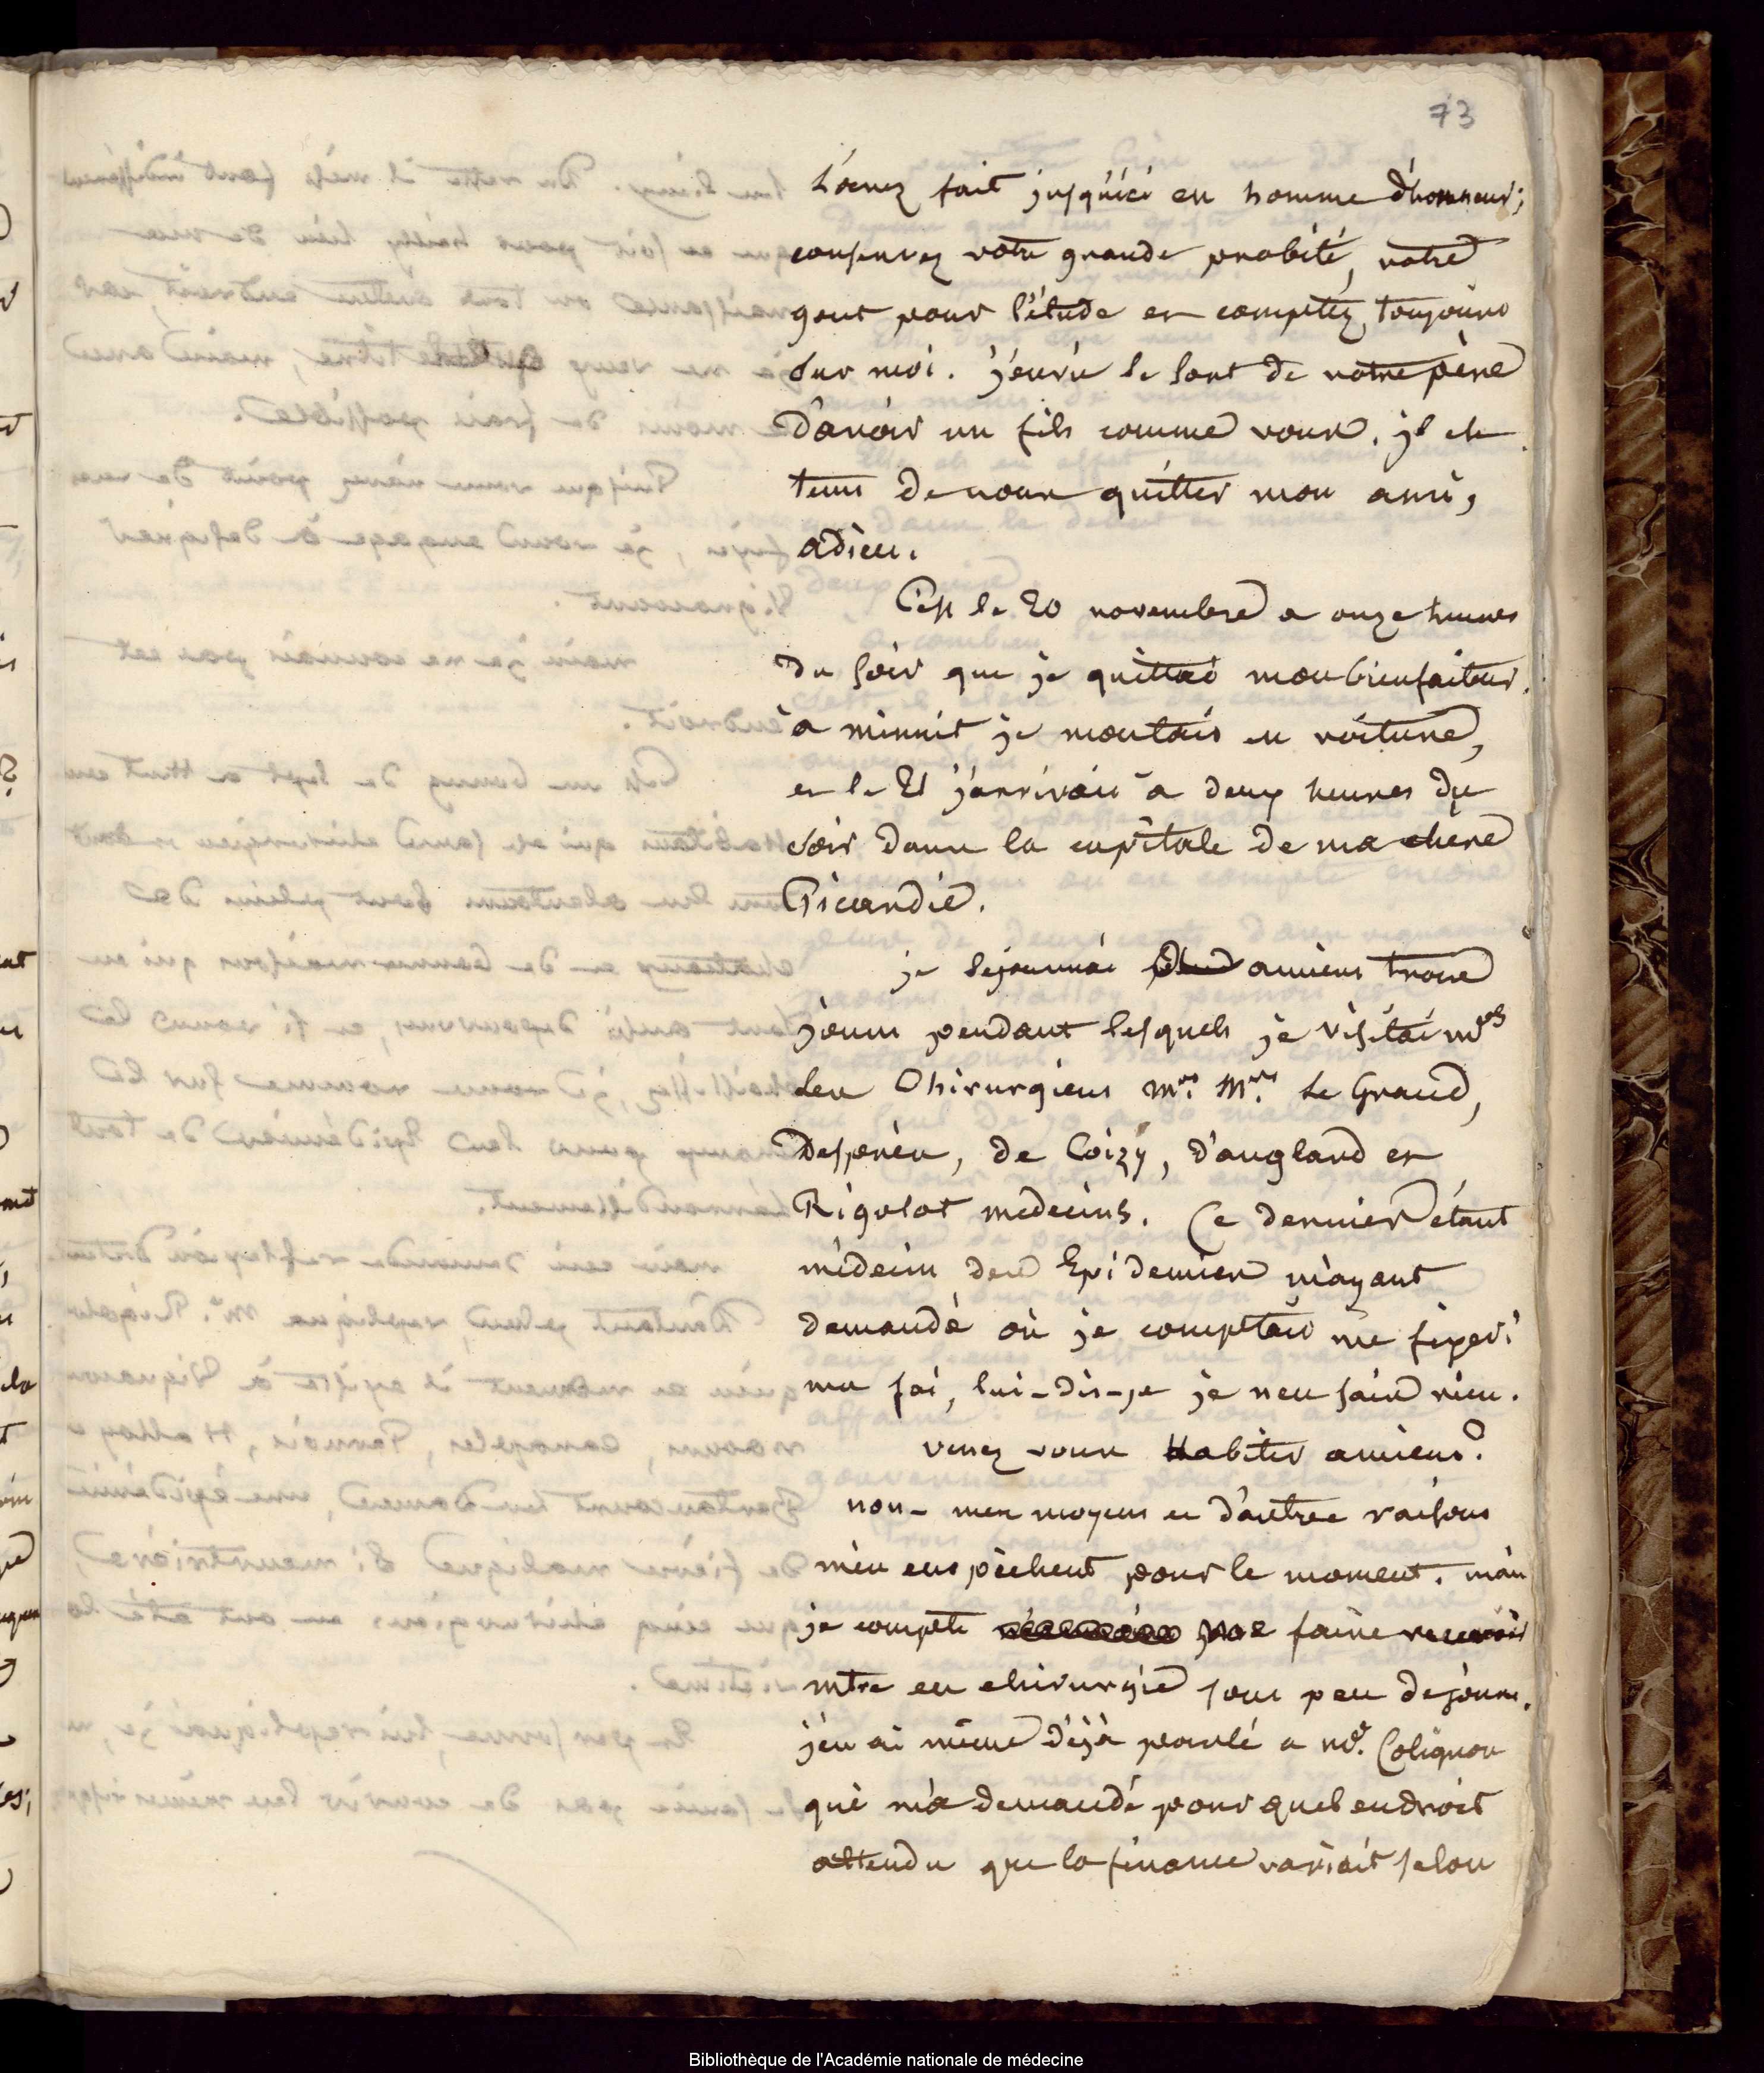 73
L'avez fait jusqu'ici en homme d'honneur;
conservez votre grande probité, votre
gout pour l'étude et comptéz toujours
sur moi. j'envie le sort de votre père
D'avoir un fils comme vous. il est
tems de nous quitter mon ami,
adieu.
C'est le 20 novembre a onze heures
du soir que je quittai mon bienfaiteur.
à minuit je montais en voiture,
et le 21 j'arrivais à deux heures du
soir dans la capitale de ma chère
Picardie.
je séjournai amiens trois
jours pendant lesquels je visitai mrs
les Chirurgiens Mrs. Mrs. Le Grand,
Desprèz, de Coizy, d'angland et
Rigolot medecins. Ce dernier étant
médecin des Epidemies m'ayant
demandé où je comptais me fixer?
ma foi, lui-dis-je je n'en sais rien.
venez vous Habiter amiens?
non - mes moyens et d'autres raisons
m'en empêchent pour le moment. mais
je compte me faire recevoir
mtre en chirurgie sous peu de jours.
j'en ai même déjà parlé a mr. Colignon
qui m'a demandé pour quel endroit
attendu que la finance variait selon
Bibliothèque de l'Académie nationale de médecine